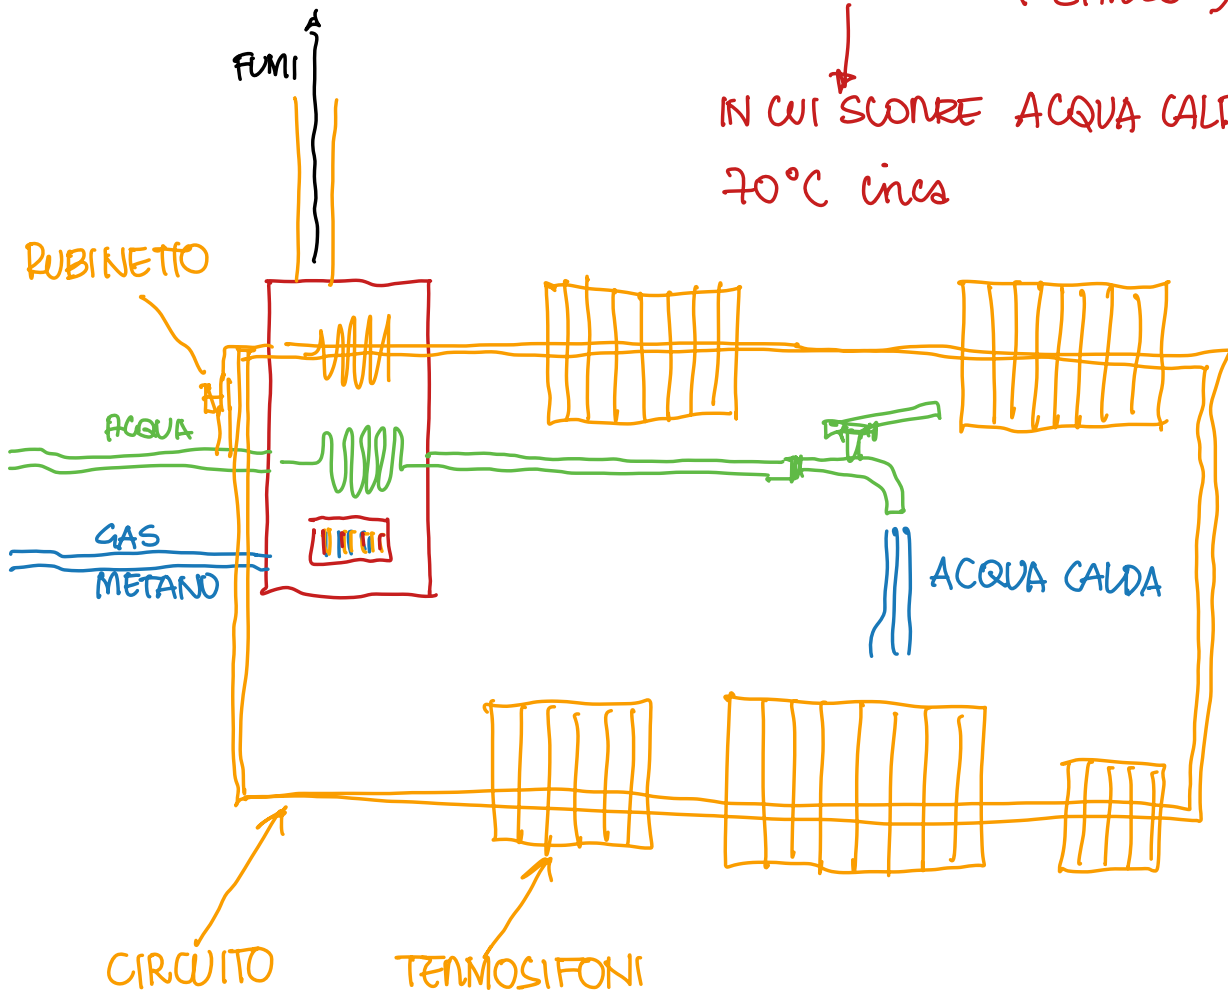 FUMI
IN CUI SCORRE ACQUA CALD
70°C circa
RUBINETTO
ACQUA
GAS
METANO
ACQUA CALDA
CIRCUITO
TERMOSIFONI